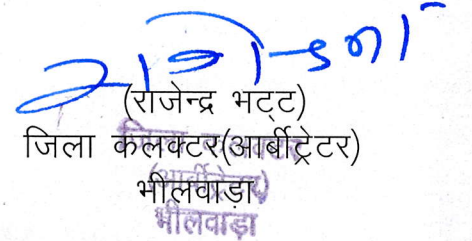 (राजेन्द्र भट्ट)
जिला कलक्टर(आर्बीट्रेटर)
भीलवाड़ा
(आर्बीट्रेटर)
भीलवाड़ा